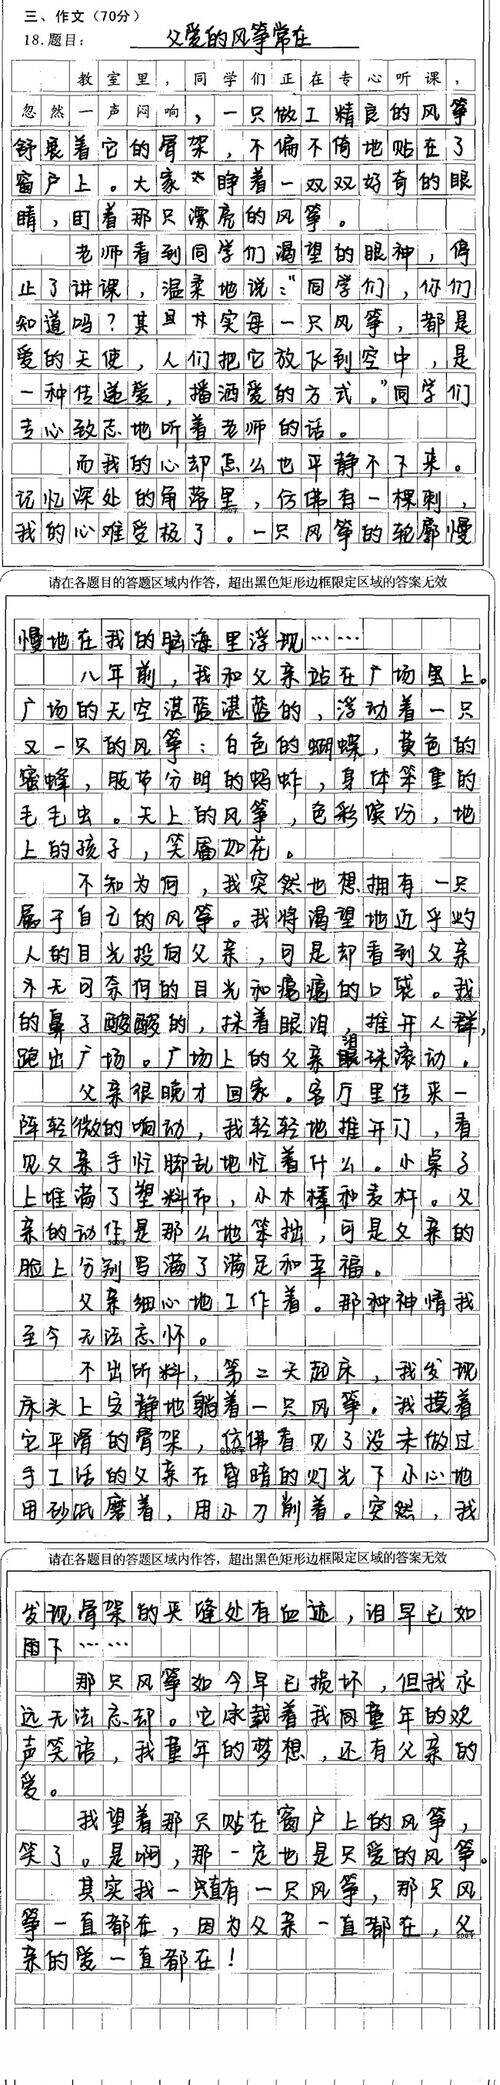 三、作文（70分）
18.题目： 父爱的风筝常在
教室里，同学们正在专心听课，
忽然一声闷响，一只做工精良的风筝
舒展着它的骨架，不偏不倚地贴在了
窗户上。大家睁着一双双好奇的眼
睛，盯着那只漂亮的风筝。
老师看到同学们渴望的眼神，停
止了讲课，温柔地说：“同学们，你们
知道吗？其实每一只风筝，都是
爱的天使，人们把它放飞到空中，是
一种传递爱，播洒爱的方式。”同学们
专心致志地听着老师的话。
而我的心却怎么也平静不下来。
记忆深处的角落里，仿佛有一棵刺，
我的心难受极了。一只风筝的轮廓慢
请在各题目的答题区域内作答，超出黑色矩形边框限定区域的答案无效
慢地在我的脑海里浮现……
八年前，我和父亲站在广场里上。
广场的天空湛蓝湛蓝的，浮动着一只
又一只的风筝：白色的蝴蝶，黄色的
蜜蜂，肢节分明的蚂蚱，身体笨重的
毛毛虫。天上的风筝，色彩缤纷，地
上的孩子，笑靥如花。
不知为何，我突然也想拥有一只
属于自己的风筝。我将渴望地近乎灼
人的目光投向父亲，可是却看到父亲
无可奈何的目光和瘪瘪的口袋。我
的鼻子酸酸的，抹着眼泪，推开人群，
跑出广场。广场上的父亲泪珠滚动。
父亲很晚才回家。客厅里传来一
阵轻微的响动，我轻轻地推开门，看
见父亲手忙脚乱地忙着什么。小桌子
上堆满了塑料布，小木棒和麦杆。父
亲的动作是那么地笨拙，可是父亲的
脸上分别写满了满足和幸福。
父亲细心地工作着。那种神情我
至今无法忘怀。
不出所料，第二天起床，我发现
床头上安静地躺着一只风筝。我摸着
它平滑的骨架，仿佛看见了没未做过
手工活的父亲在昏暗的灯光下小心地
用砂纸磨着，用小刀削着。突然，我
请在各题目的答题区域内作答，超出黑色矩形边框限定区域的答案无效
发现骨架的夹缝处有血迹，泪早已如
雨下……
那只风筝如今早已损坏，但我永
远无法忘却。它承载着我同童年的欢
声笑语，我童年的梦想，还有父亲的
爱。
我望着那只贴在窗户上的风筝，
笑了。是啊，那一定也是只爱的风筝。
其实我一直有一只风筝，那只风
筝一直都在，因为父亲一直都在，父
亲的爱一直都在！